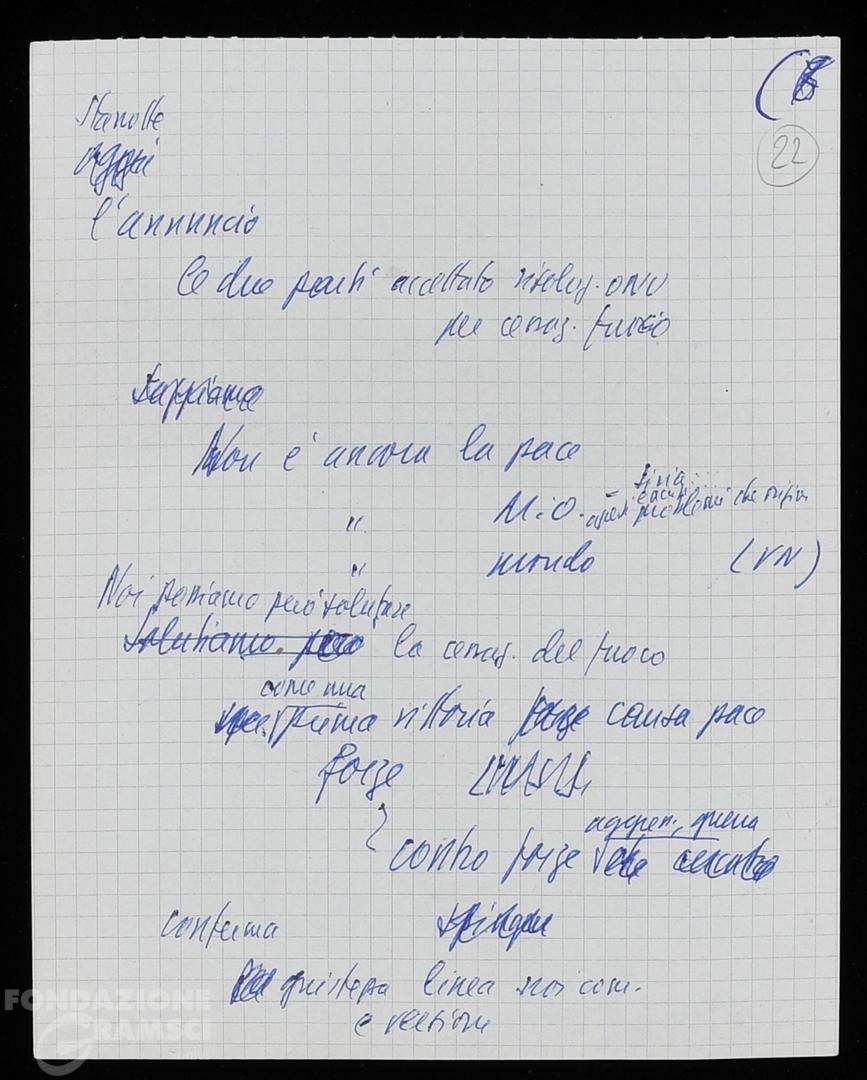 (6
22
Stanotte
oggi
l'annuncio
le due parti accettato risoluz. ONU
per cessaz. fuoco
Sappiamo
Non è ancora la pace
" M.O. - Siria...
aperti problemi che
" mondo (VN)
Noi possiamo però salutare
Salutiamo però la cessaz. del fuoco
come una
prima vittoria forze causa pace
forze
contro forze aggress., guerra
che
conferma
giustezza linea noi com.
FONDAZIONE
GRAMSCI